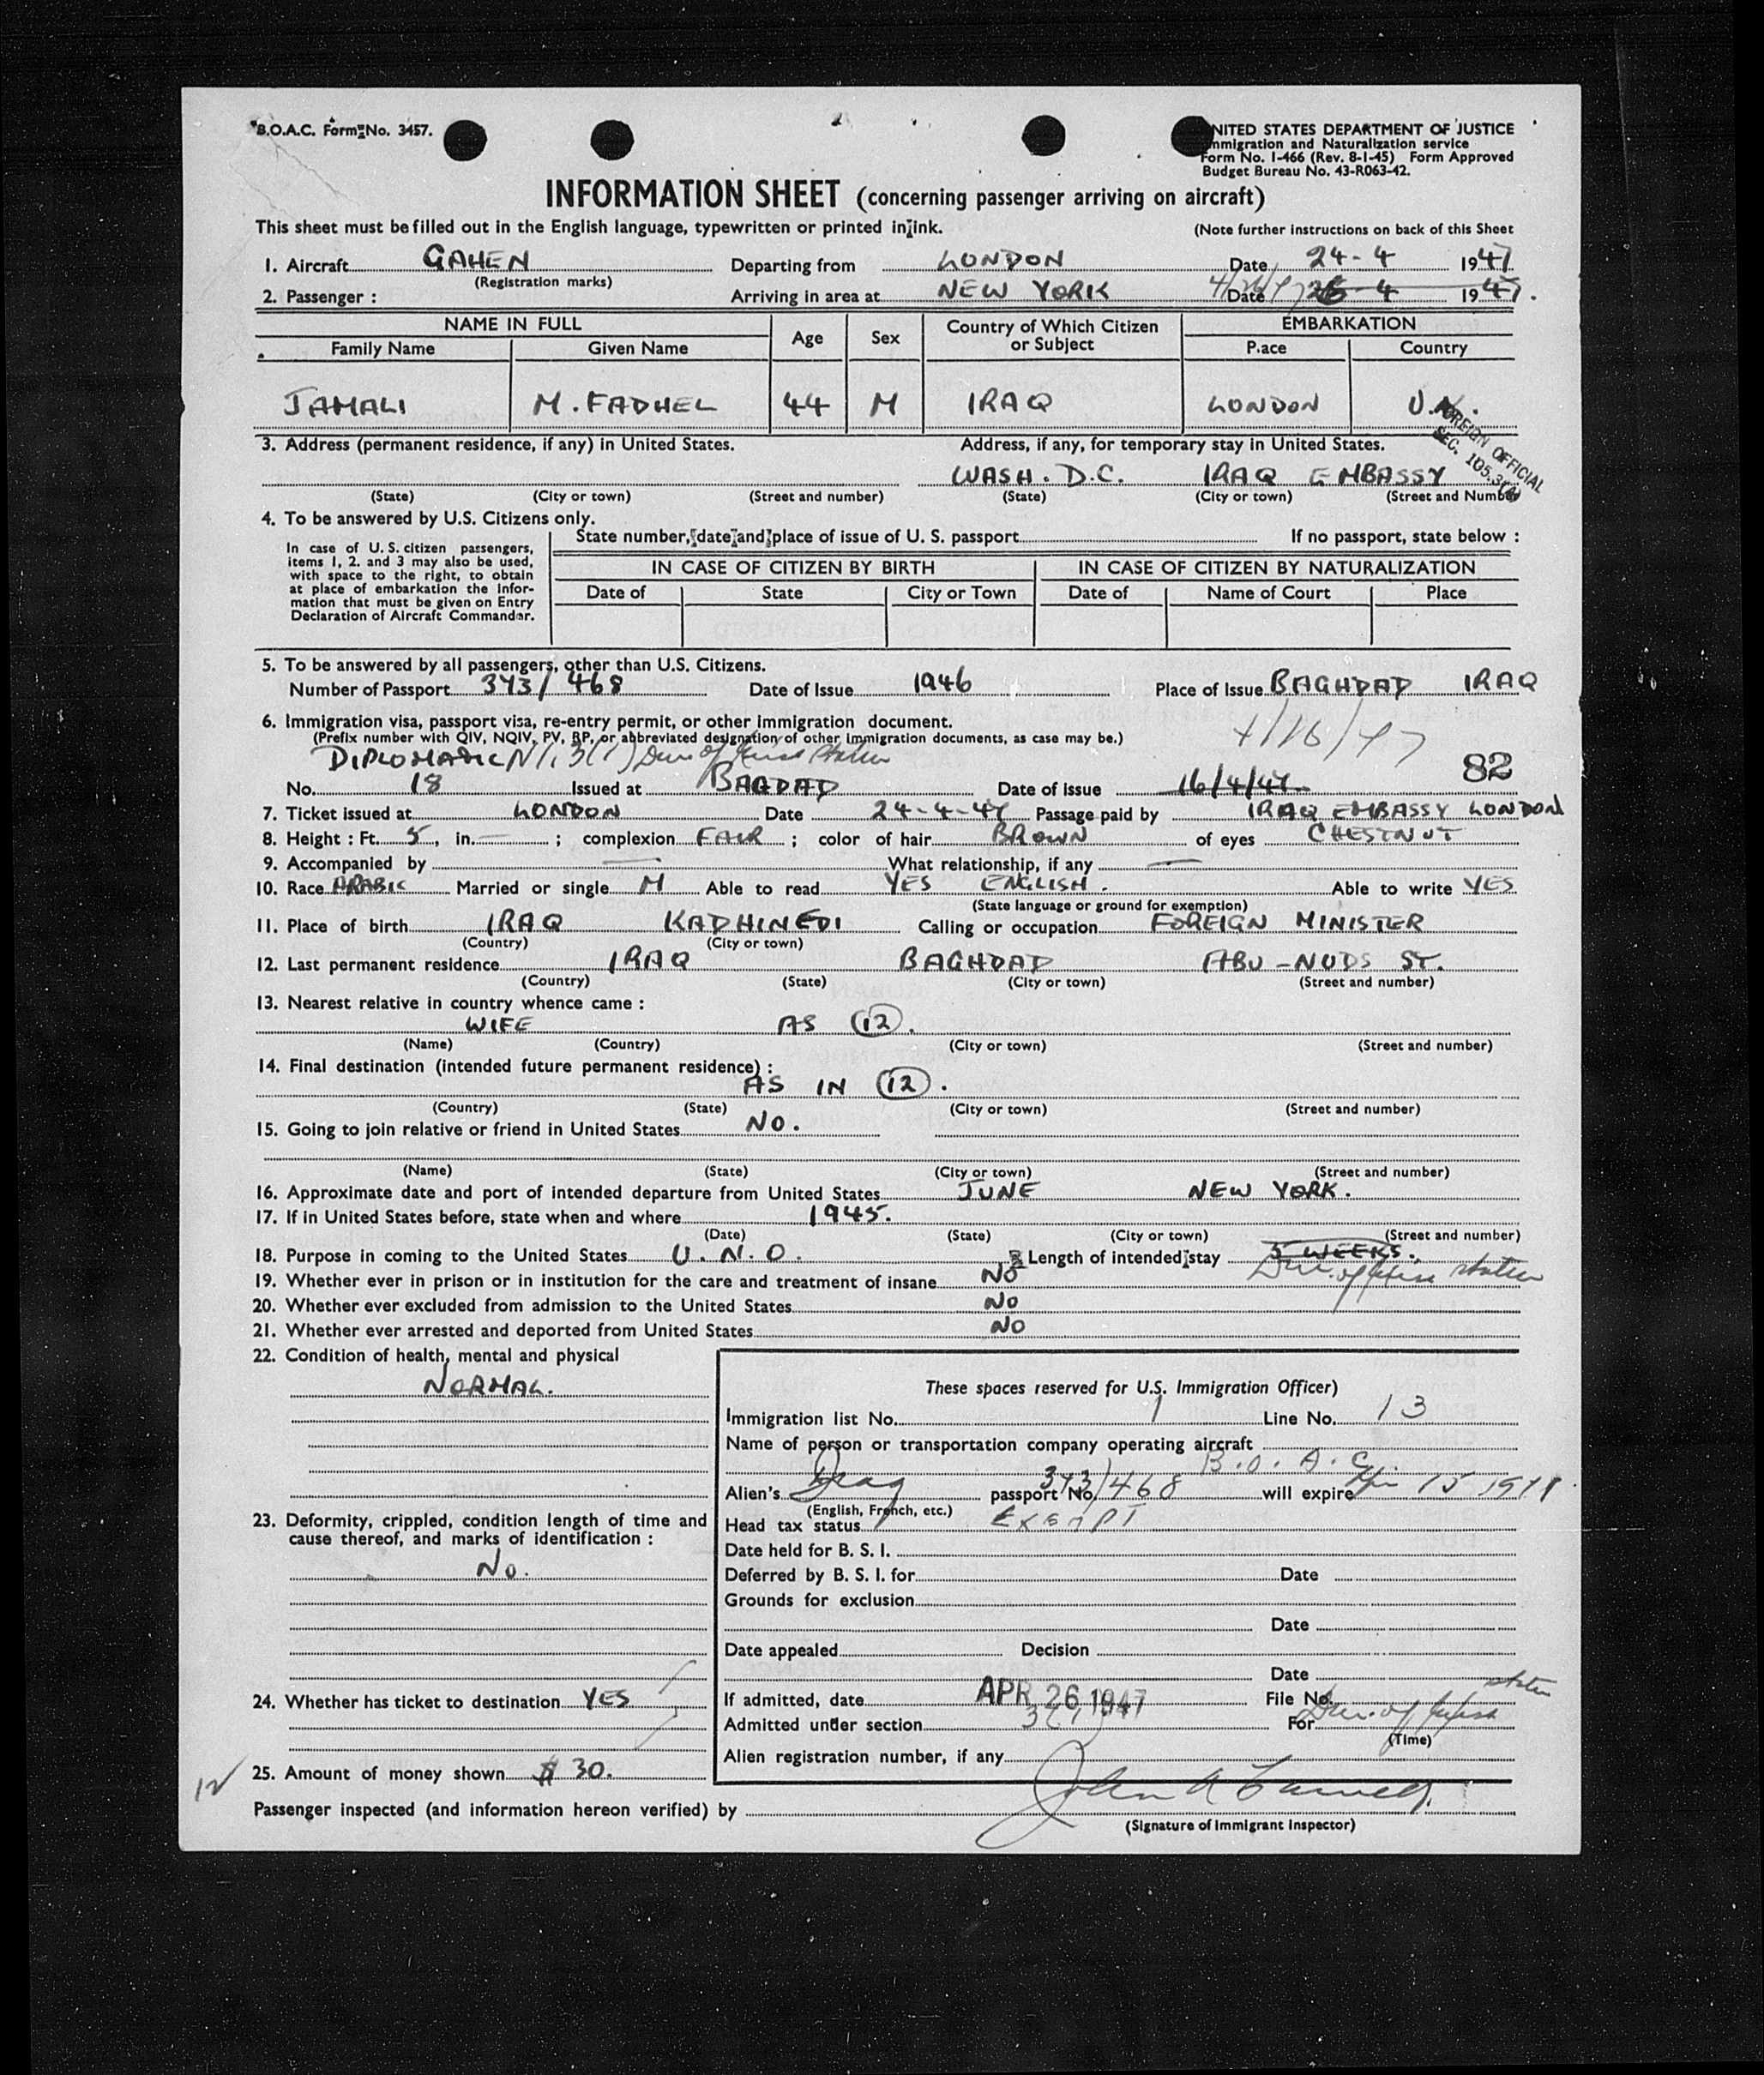 B.O.A.C. Form No. 3457.
NITED STATES DEPARTMENT OF JUSTICE
mmigration and Naturalization service
Form No. I-466 (Rev. 8-1-45) Form Approved
Budget Bureau No. 43-R063-42.
INFORMATION SHEET (concerning passenger arriving on aircraft)
This sheet must be filled out in the English language, typewritten or printed in ink. (Note further instructions on back of this Sheet
1. Aircraft GAHEN Departing from LONDON Date 24-4 1947
(Registration marks)
2. Passenger : Arriving in area at NEW YORK Date 26-4 1947.
NAME IN FULL Age Sex Country of Which Citizen or Subject EMBARKATION
Family Name Given Name P.ace Country
JAMALI M. FADHEL 44 M IRAQ LONDON U.K.
FOREIGN OFFICIAL
SEC. 105.3
3. Address (permanent residence, if any) in United States. Address, if any, for temporary stay in United States.
WASH. D.C. IRAQ EMBASSY
(State) (City or town) (Street and number) (State) (City or town) (Street and Number
4. To be answered by U.S. Citizens only.
In case of U.S. citizen passengers, items 1, 2. and 3 may also be used, with space to the right, to obtain at place of embarkation the Information that must be given on Entry Declaration of Aircraft Commander.
State number, date and place of issue of U. S. passport If no passport, state below :
IN CASE OF CITIZEN BY BIRTH IN CASE OF CITIZEN BY NATURALIZATION
Date of State City or Town Date of Name of Court Place
5. To be answered by all passengers, other than U.S. Citizens.
Number of Passport 373/468 Date of Issue 1946 Place of Issue BAGHDAD IRAQ
6. Immigration visa, passport visa, re-entry permit, or other immigration document.
(Prefix number with QIV, NQIV, PV, RP, or abbreviated designation of other immigration documents, as case may be.)
4/16/47
DIPLOMATIC 3(1)
82
No. 18 Issued at BAGDAD Date of issue 16/4/47
7. Ticket issued at LONDON Date 24-4-47 Passage paid by IRAQ EMBASSY LONDON
8. Height : Ft. 5, in. — ; complexion FAIR ; color of hair BROWN of eyes CHESTNUT
9. Accompanied by — What relationship, if any —
10. Race ARABIC Married or single M Able to read YES ENGLISH. Able to write YES
(State language or ground for exemption)
11. Place of birth IRAQ KADHINEDI Calling or occupation FOREIGN MINISTER
(Country) (City or town)
12. Last permanent residence IRAQ BAGHDAD ABU-NUDS ST.
(Country) (State) (City or town) (Street and number)
13. Nearest relative in country whence came :
WIFE AS 12.
(Name) (Country) (City or town) (Street and number)
14. Final destination (intended future permanent residence) :
AS IN 12.
(Country) (State) (City or town) (Street and number)
15. Going to join relative or friend in United States NO.
(Name) (State) (City or town) (Street and number)
16. Approximate date and port of intended departure from United States JUNE NEW YORK.
17. If in United States before, state when and where 1945.
(Date) (State) (City or town) (Street and number)
18. Purpose in coming to the United States U.N.O. Length of intended stay 5 WEEKS.
19. Whether ever in prison or in institution for the care and treatment of insane NO
20. Whether ever excluded from admission to the United States NO
21. Whether ever arrested and deported from United States NO
22. Condition of health, mental and physical
NORMAL.
These spaces reserved for U.S. Immigration Officer)
Immigration list No. 1 Line No. 13
Name of person or transportation company operating aircraft
B.O.A.C.
Alien's Iraq passport No. 373/468 will expire
(English, French, etc.)
Head tax status EXEMPT
23. Deformity, crippled, condition length of time and cause thereof, and marks of identification :
No.
Date held for B. S. I.
Deferred by B. S. I. for Date
Grounds for exclusion
Date
Date appealed Decision
Date
24. Whether has ticket to destination YES
If admitted, date APR 26 1947 File No.
Admitted under section 3(1) For
(Time)
Alien registration number, if any
25. Amount of money shown $ 30.
Passenger inspected (and information hereon verified) by
(Signature of Immigrant Inspector)